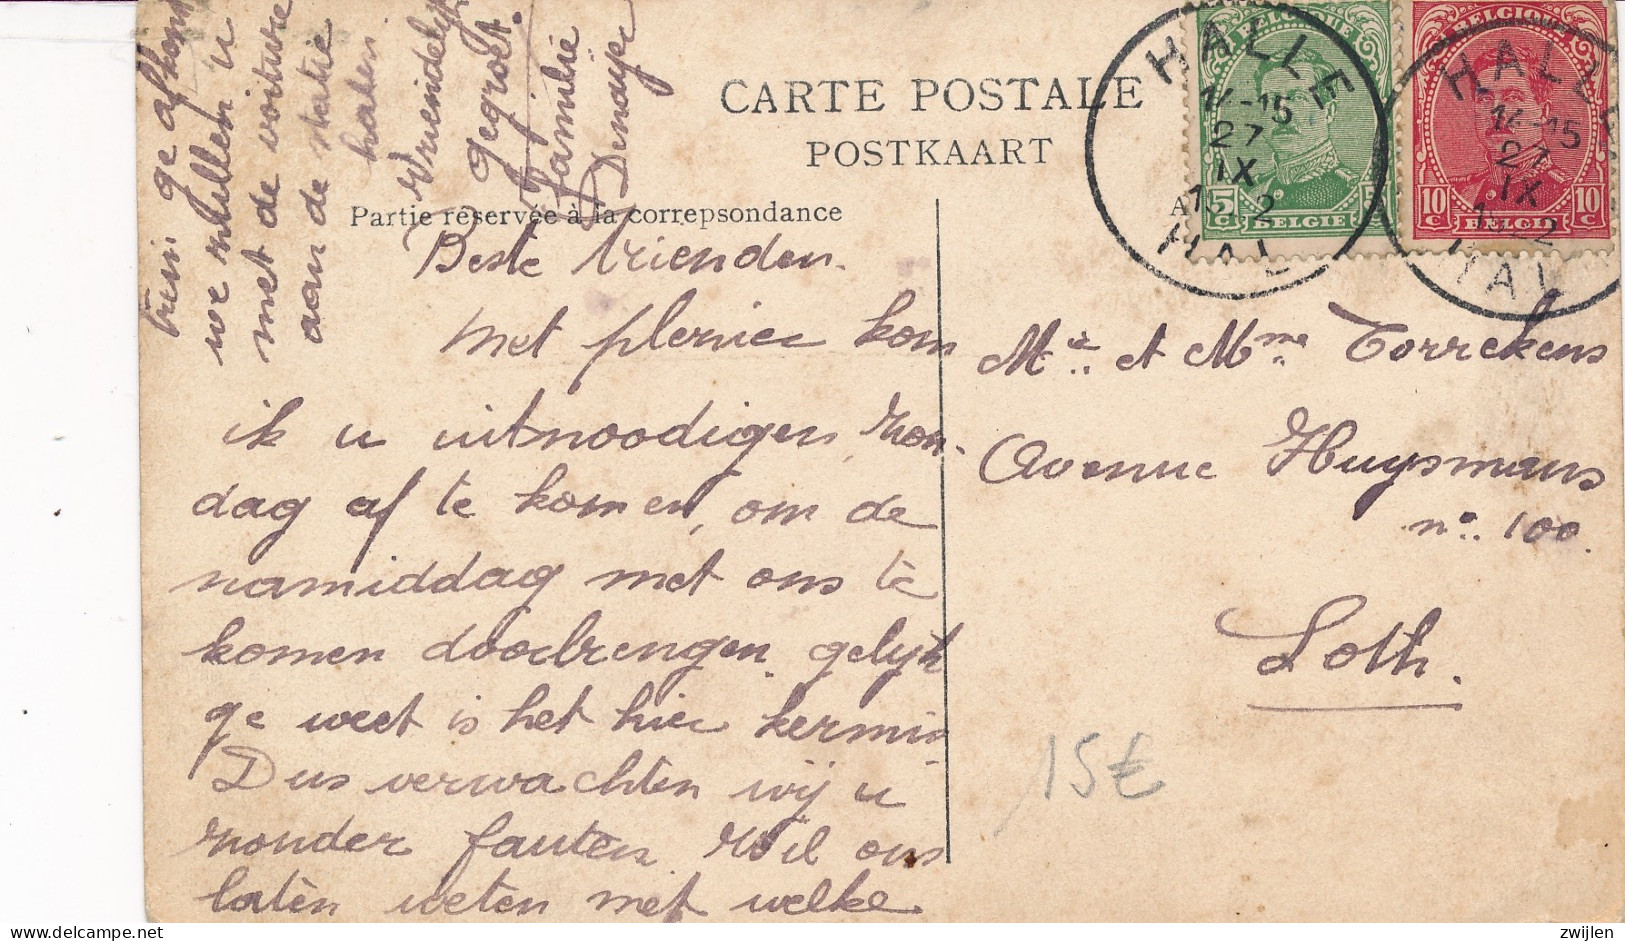 CARTE POSTALE
POSTKAART
Partie réservée à la correpsondance
Beste Vrienden.
Met plenier kom
ik u uitnoodigen, zon-
dag af te komen, om de
namiddag met ons te
komen doorbrengen gelijk
ge weet is het hier kermis
Dus verwachten wij u
zonder fauten Wil ons
laten weten met welke
trein ge afkomt
we zullen u
met de voiture
aan de statie
halen
Vriendelijk
gegroet.
Familie
BELGIQUE
5 C
BELGIE
BELGIQUE
10 C 10 C
BELGIË
HALLE
14-15
27
IX
HAL
HALLE
14-15
27
IX
HAL
Mr et Mme Torrekens
Avenue Huysmans
no. 100.
Loth.
15€
zwijlen